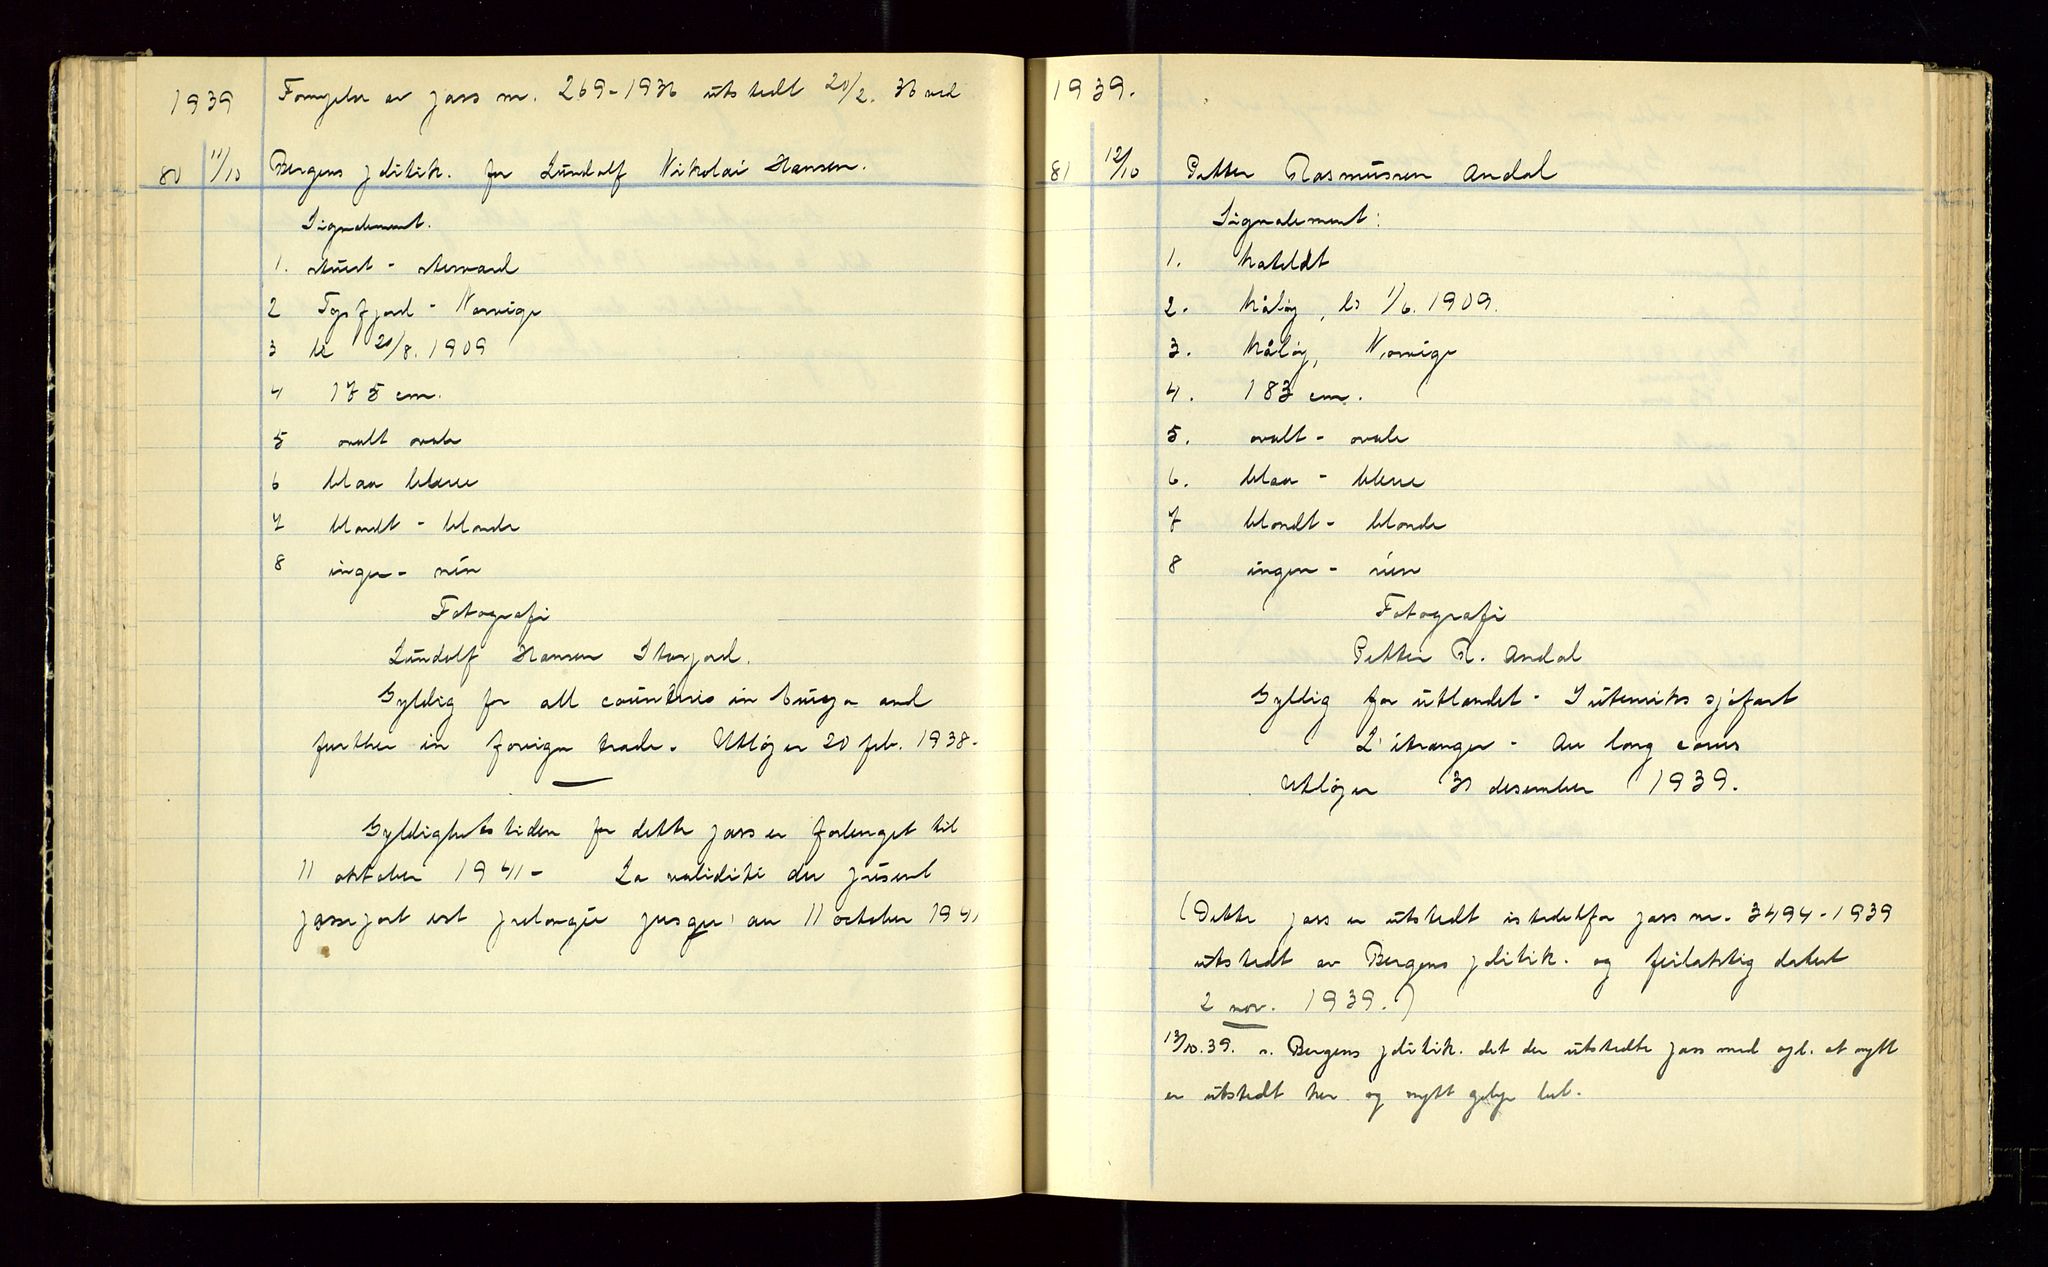 1939 Fornyelse av pass nr. 269-1936 utstedt 20/2. 36 ved
80 11/10 Bergens politik. for Lundolf Nikolai Hansen.
Signalement.
1. stuert - steward
2 Tysfjord - Norvège
3 le 20/8. 1909
4 175 cm.
5 ovalt ovale
6 blaa bleue
7 blondt - blonde
8 ingen - rien
Fotografi
Lundolf Hansen Storjord.
Gyldig for all countries in Europa and
further in foreign trade. Utløper 20 feb. 1938.
Gyldighetstiden for dette pass er forlenget til
11 oktober 1941 - La validité du présent
passeport est prolongée jusqu' au 11 october 1941
1939.
81 12/10 Petter Rasmussen Andal
Signalement:
1.
2. Måløy, le 1/6. 1909.
3. Måløy, Norvège
4. 183 cm.
5. ovalt - ovale
6. blaa - bleue
7 blondt - blonde
8 ingen - rien
Fotografi
Petter R. Andal
Gyldig for utlandet - I utenriks sjøfart
L'étranger - Au long cours
Utløper 31 desember 1939.
(Dette pass er utstedt istedetfor pass nr. 3494-1939
utstedt av Bergens politik. og feilaktig datert
2 nov. 1939.)
13/10.39. s. Bergens politik. det der utstedte pass med opl. at nytt
er utstedt her og nytt gebyr bet.